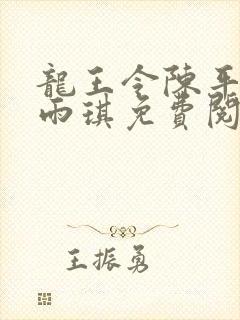 龍王令陳平
雨琪免費閱
王振勇